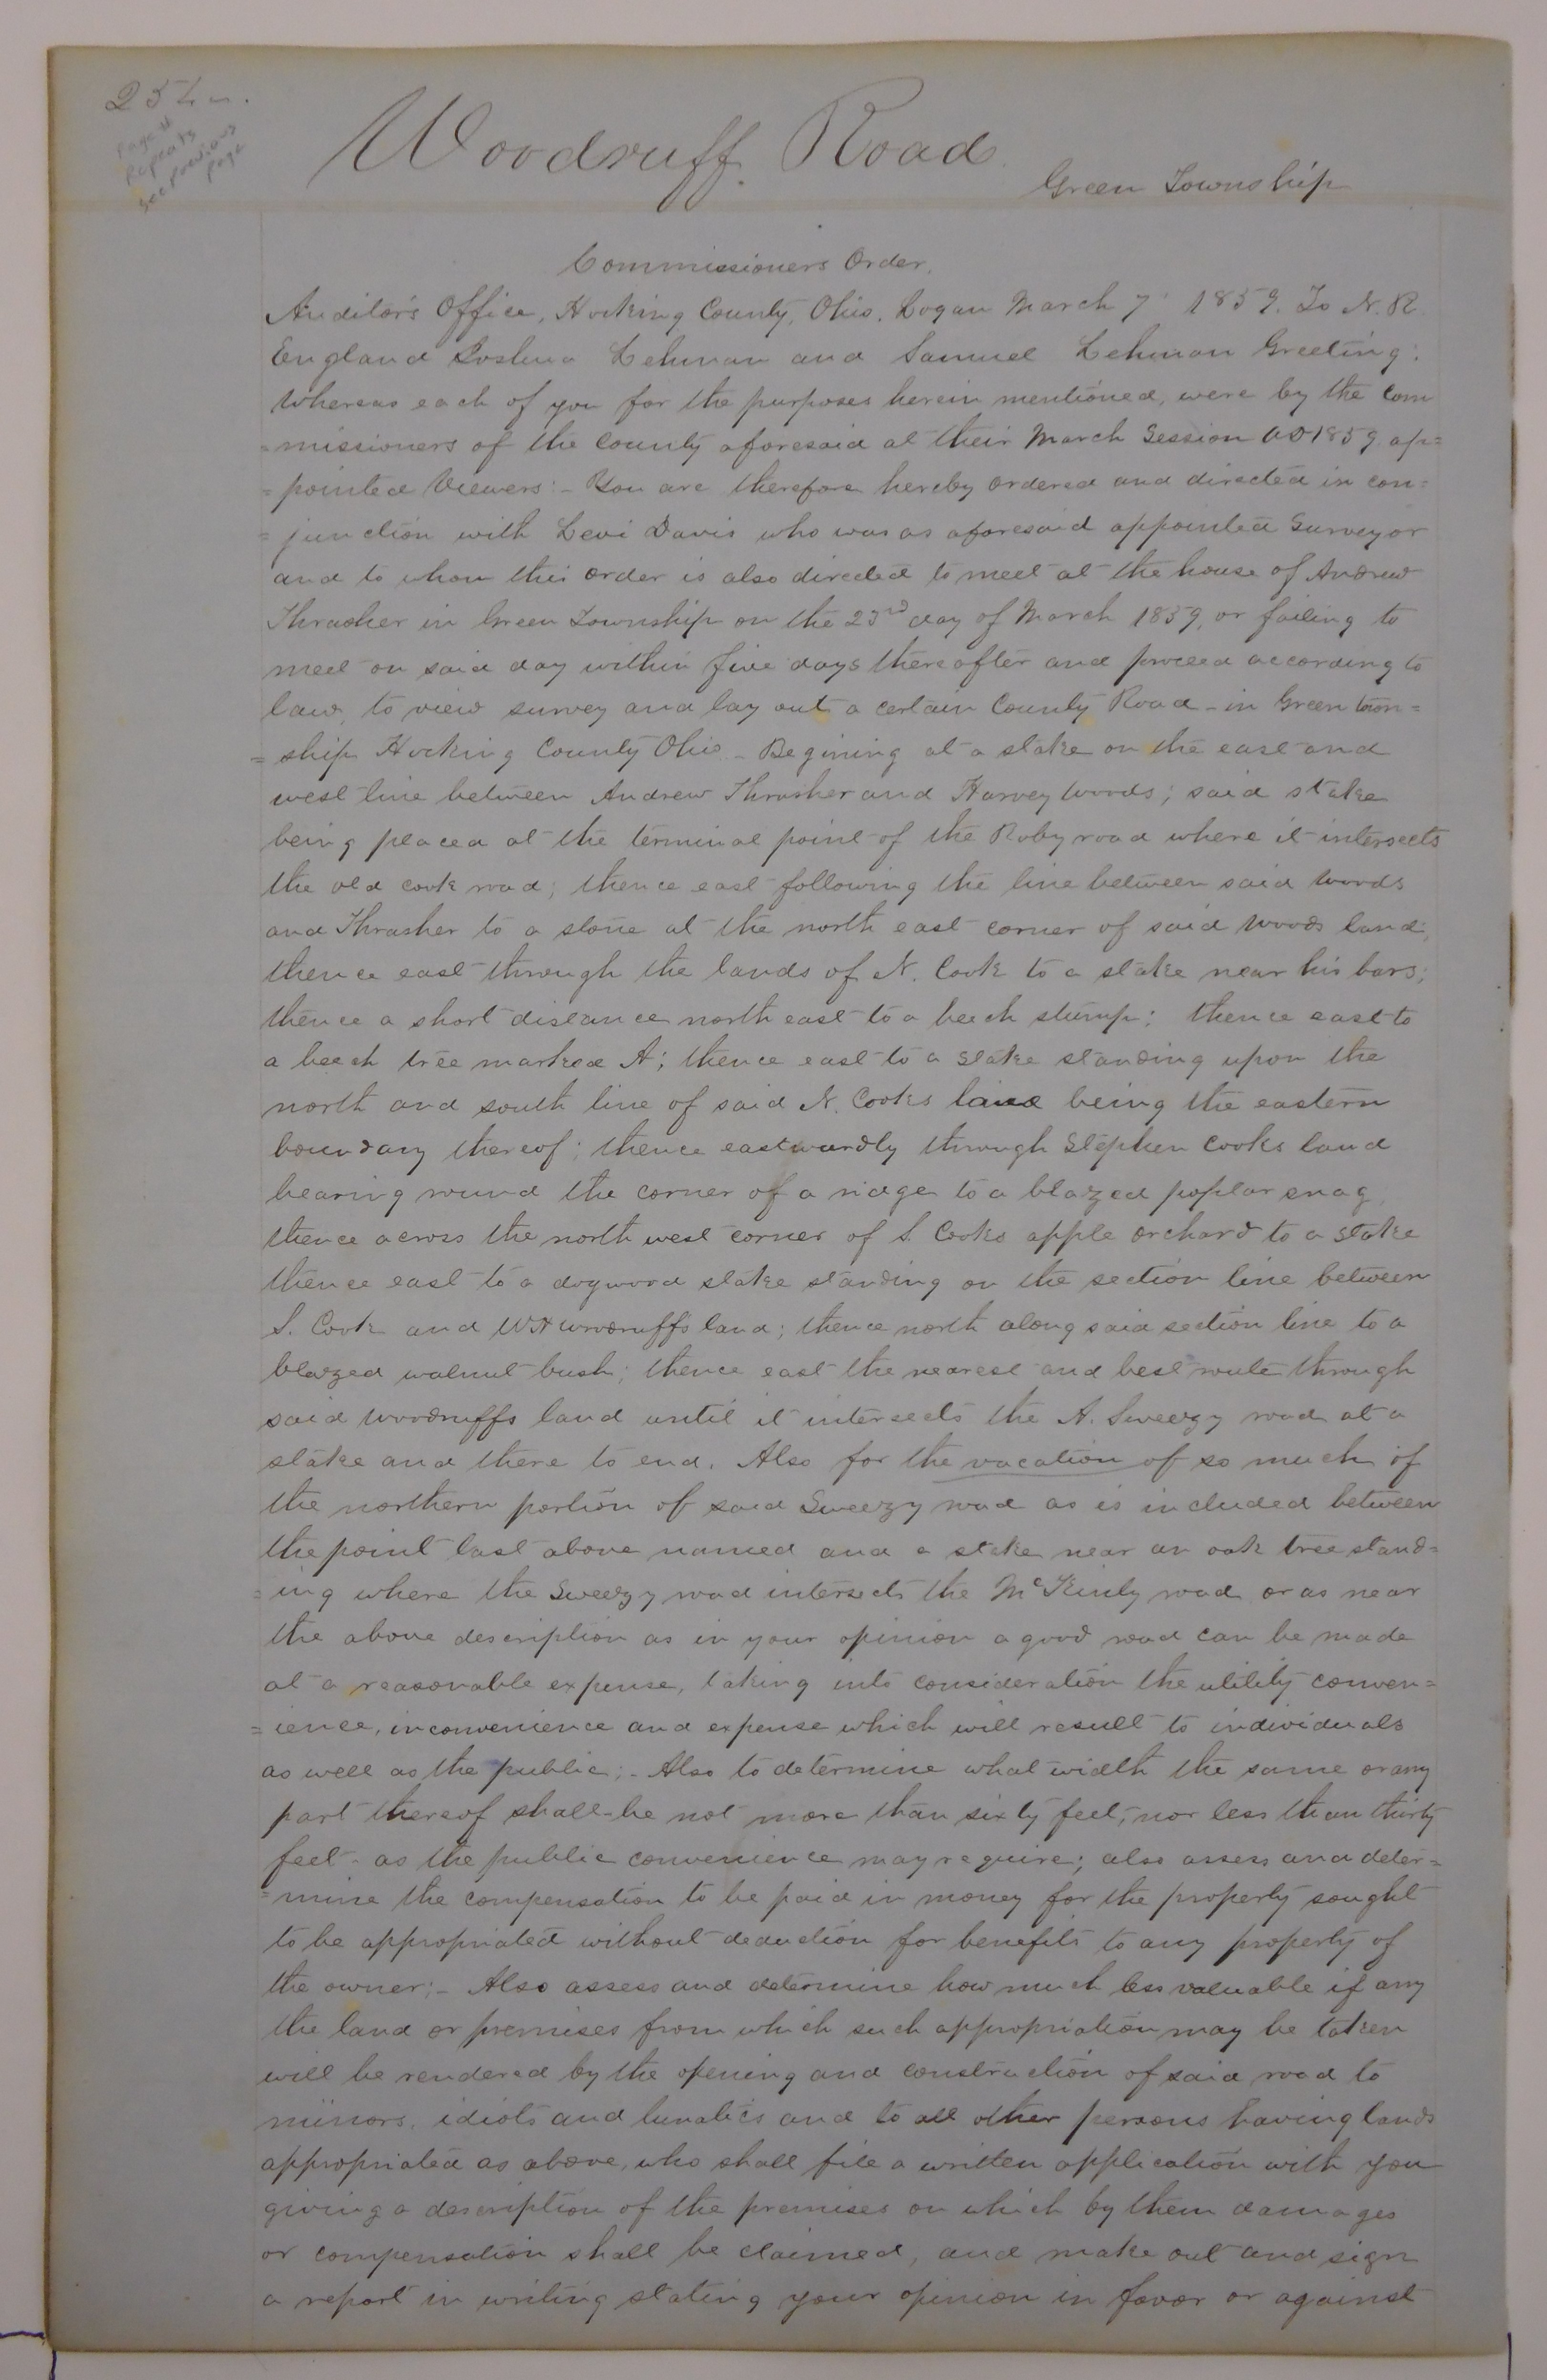 252
Page #
Repeats
See previous
page
Woodruff Road
Green Township
Commissioners Order.
Auditor's Office, Hocking County, Ohio, Logan March 7 1859. To N. R.
England Joshua Lehman and Samuel Lehman Greeting:
Whereas each of you for the purposes herein mentioned, were by the Com
=missioners of the County aforesaid at their March Session AD 1859 ap=
=pointed Viewers:- You are therefore hereby ordered and directed in con=
=junction with Levi Davis who was as aforesaid appointed Surveyor
and to whom this order is also directed to meet at the house of Andrew
Thrasher in Green Township on the 23rd day of March 1859, or failing to
meet on said day within five days thereafter and proceed according to
law, to view survey and lay out a certain County Road - in Green town=
=ship Hocking County Ohio - Begining at a stake on the east and
west line between Andrew Thrasher and Harvey Woods; said stake
being placed at the terminal point of the Roby road where it intersects
the old cook road; thence east following the line between said Woods
and Thrasher to a stone at the north east corner of said Woods land;
thence east through the lands of N. Cook to a stake near his bars;
thence a short distance north east to a beech stump; thence east to
a beech tree marked A; thence east to a stake standing upon the
north and south line of said N. Cooks land being the eastern
boundary thereof; thence eastwardly through Stephen Cooks land
bearing round the corner of a ridge to a blazed poplar snag
thence across the north west corner of S. Cooks apple orchard to a stake
thence east to a dogwood stake standing on the section line between
S. Cook and WH Woodruffs land; thence north along said section line to a
blazed walnut bush; thence east the nearest and best route through
said Woodruffs land until it intersects the A. Sweezy road at a
stake and there to end. Also for the vacation of so much of
the northern portion of said Sweezy road as is included between
the point last above named and a stake near an oak tree stand=
=ing where the Sweezy road intersects the McKinly road or as near
the above description as in your opinion a good road can be made
at a reasonable expense, taking into consideration the utility conven=
=ience, inconvenience and expense which will result to individuals
as well as the public;- Also to determine what width the same or any
part thereof shall be not more than sixty feet, nor less than thirty
feet as the public convenience may require; also assess and deter=
=mine the compensation to be paid in money for the property sought
to be appropriated without deduction for benefits to any property of
the owner;- Also assess and determine how much less valuable if any
the land or premises from which such appropriation may be taken
will be rendered by the opening and construction of said road to
minors, idiots and lunatics and to all other persons having lands
appropriated as above, who shall file a written application with you
giving a description of the premises on which by them damages
or compensation shall be claimed, and make out and sign
a report in writing stating your opinion in favor or against